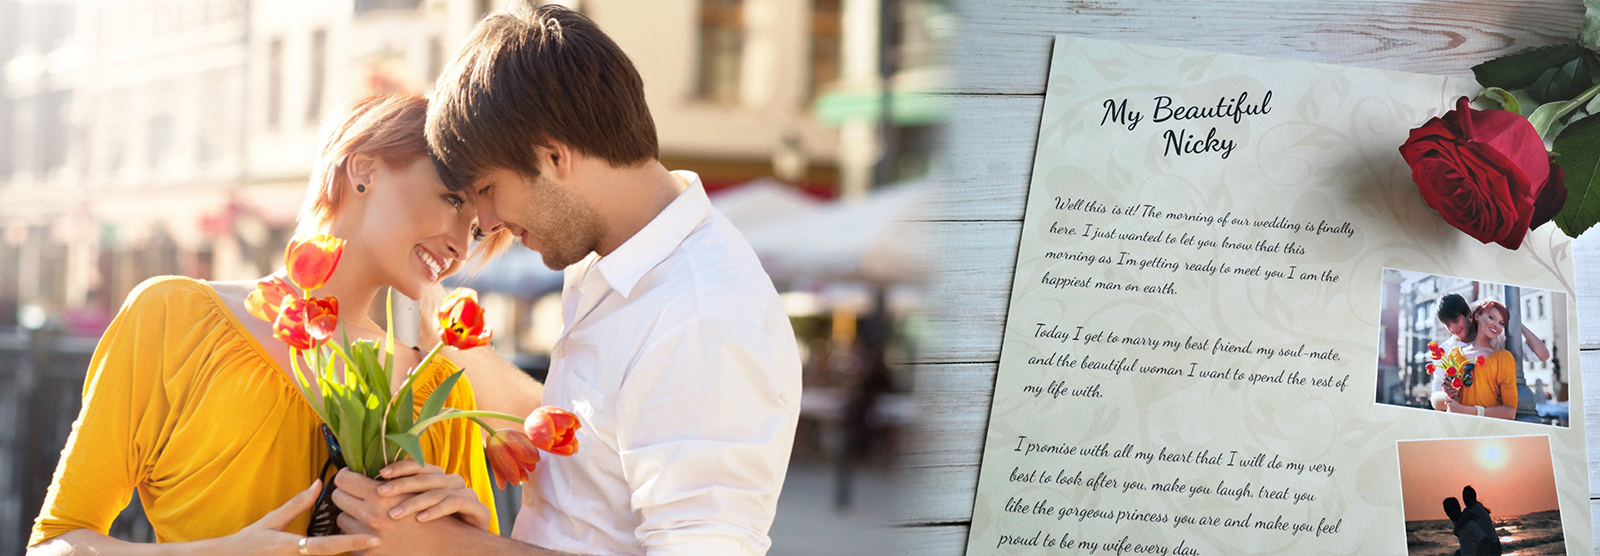 My Beautiful
Nicky
Well this is it! The morning of our wedding is finally
here. I just wanted to let you know that this
morning as I'm getting ready to meet you I am the
happiest man on earth.
Today I get to marry my best friend, my soul-mate,
and the beautiful woman I want to spend the rest of
my life with.
I promise with all my heart that I will do my very
best to look after you, make you laugh, treat you
like the gorgeous princess you are and make you feel
proud to be my wife every day.